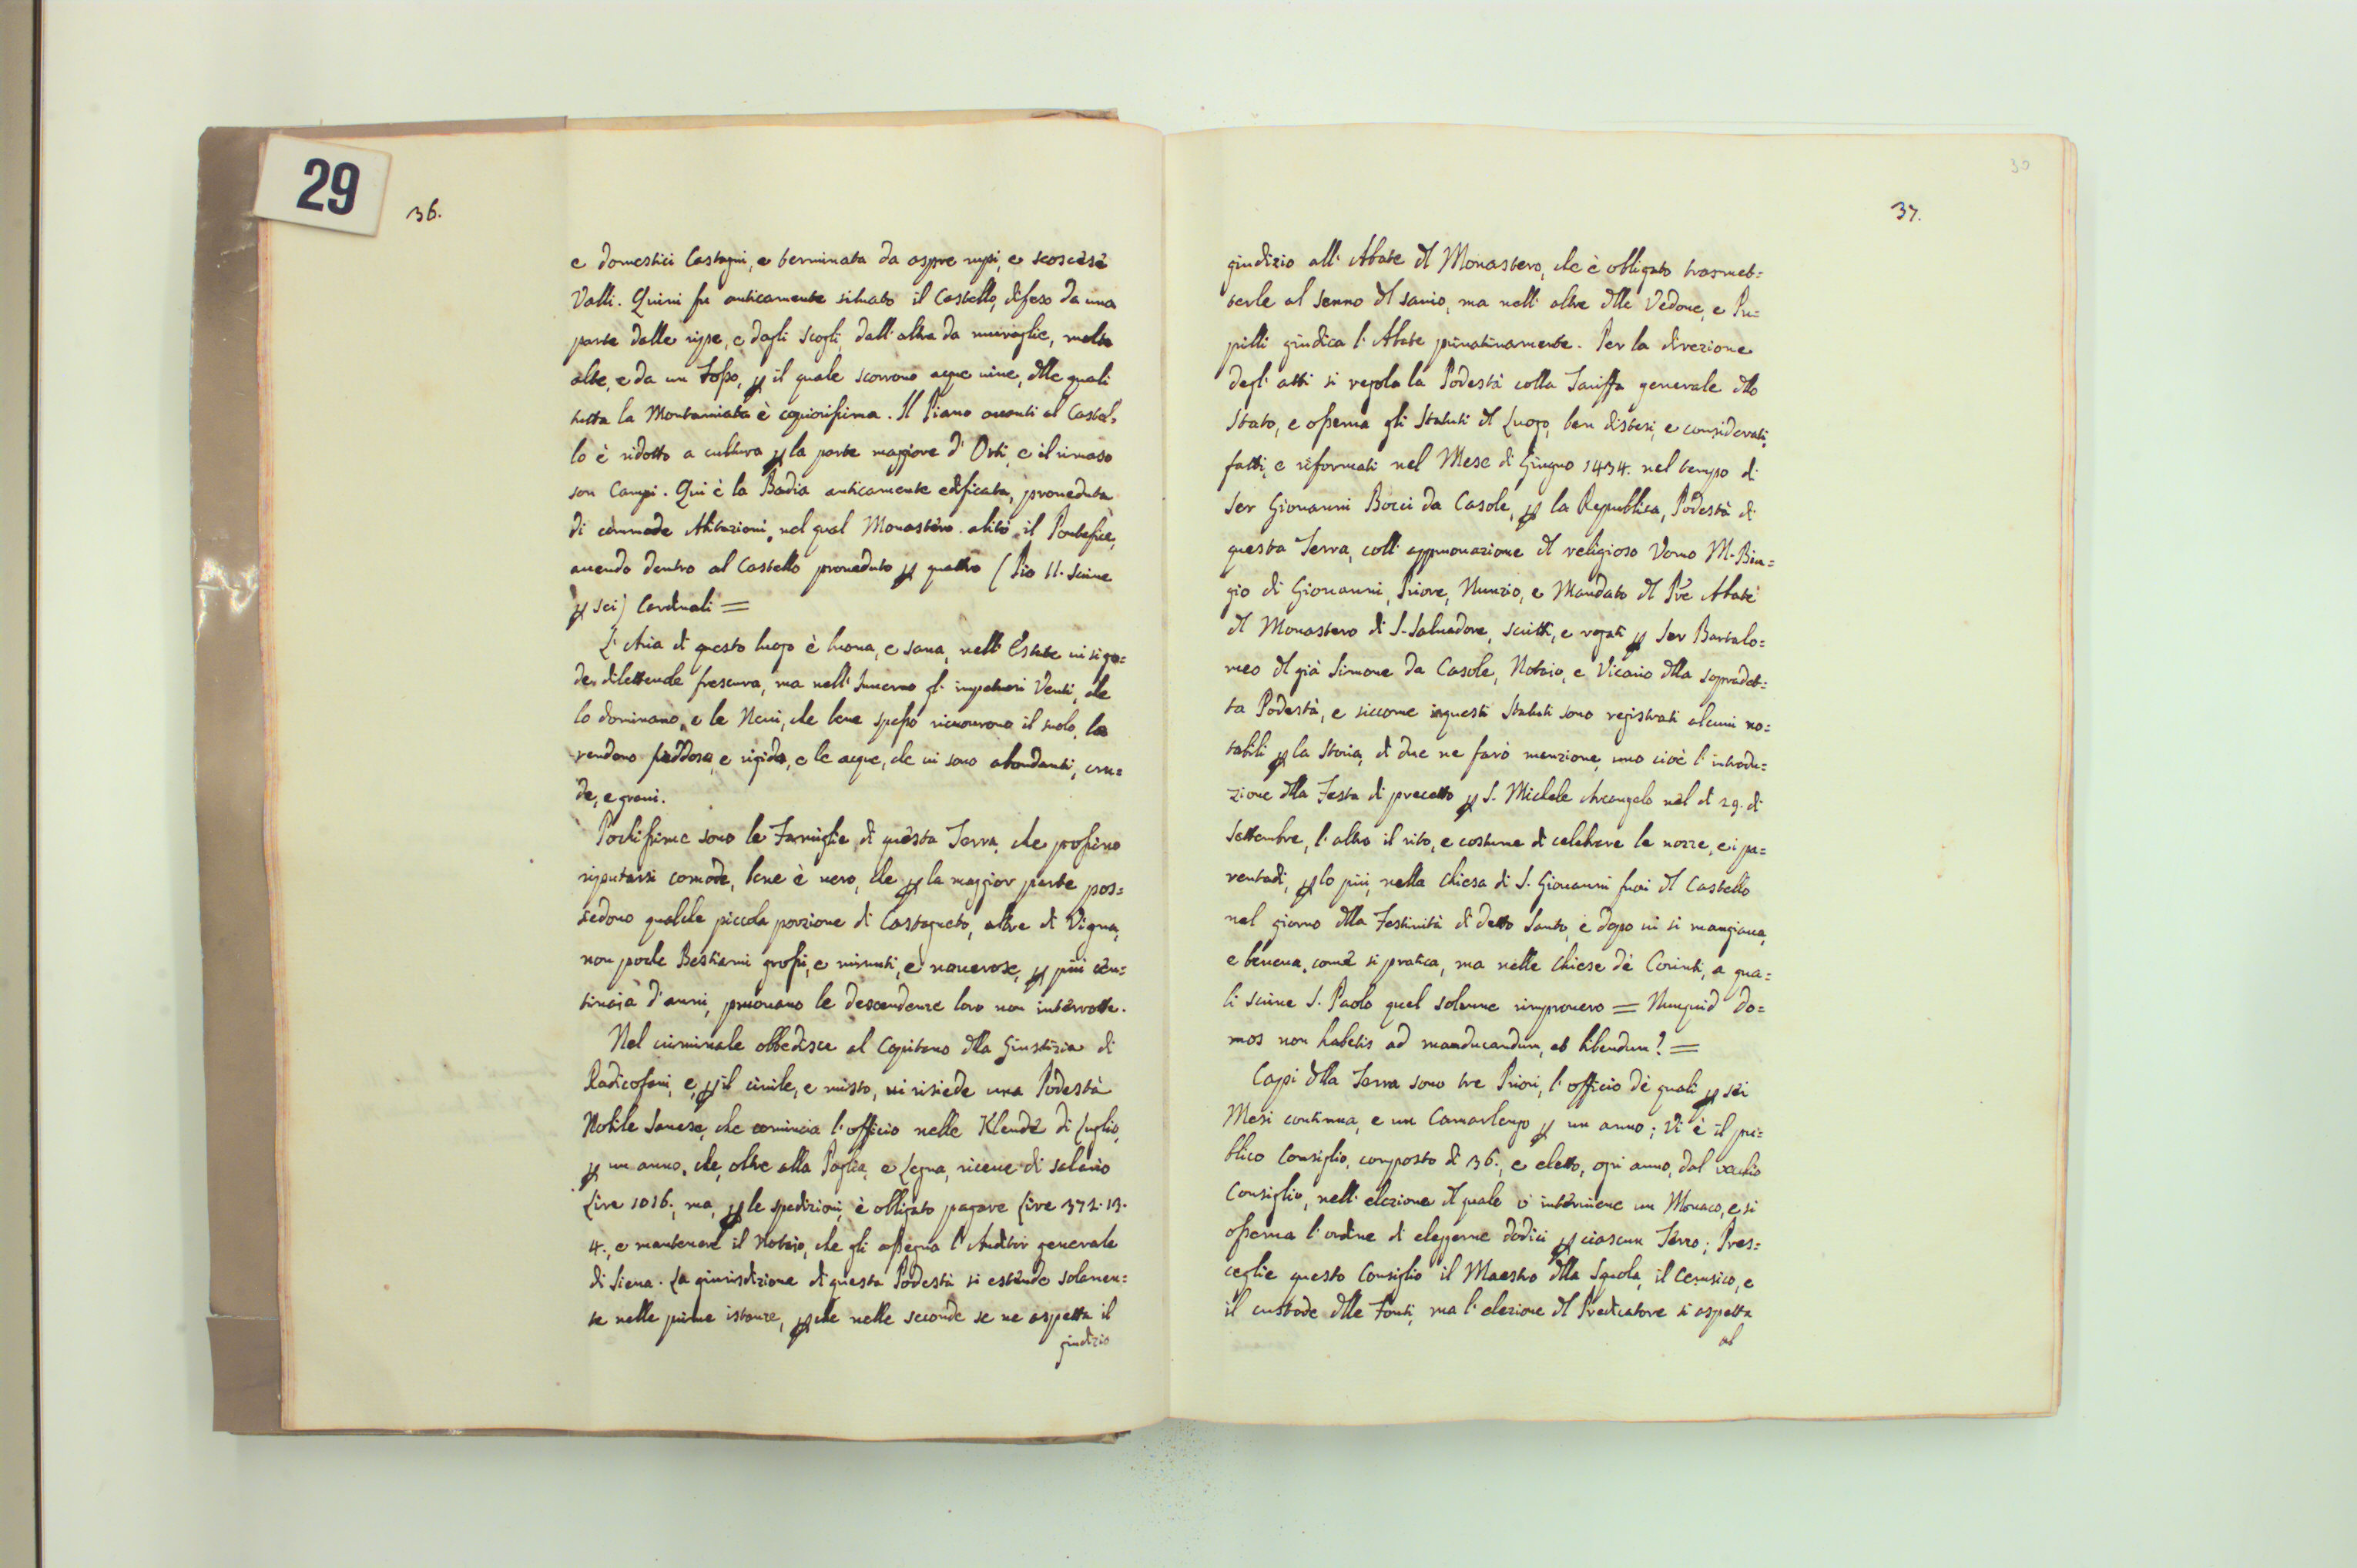 29
36.
e domestici Castagni, e terminata da aspre rupi, e scoscese
Valli. Quivi fu anticamente situato il Castello, difeso da una
parte dalle ripe, e dagli scogli, dall' altra da muraglie, molto
alte, e da un Fosso, ꝑ il quale scorrono acque vive, dlle quali
tutta la Montamiata è copiosissima. Il Piano avanti al Castel=
lo è ridotto a cultura ꝑ la parte maggiore d' Orti, e il rimaso
son Campi. Qui è la Badia anticamente edificata, proveduta
di commode Abitazioni, nel qual Monastero abitò il Pontefice,
avendo dentro al Castello proveduto ꝑ quattro (Pio II. scrive
ꝑ sei) Cardinali =
L' Aria di questo luogo è buona, e sana, nell' Estate vi si go=
de dilettevole frescura, ma nell' Inverno gl' impetuosi Venti, che
lo dominano, e le Nevi, che bene spesso ricuoprono il suolo, la
rendono freddosa, e rigida, e le acque, che vi sono abondanti, cru=
de, e gravi.
Pochissime sono le Famiglie di questa Terra, che possino
riputarsi comode, bene è vero, che ꝑ la maggior parte pos=
siedono qualche piccola porzione di Castagneto, altre di Vigna,
non poche Bestiami grossi, e minuti, e numerose, ꝑ più cen=
tinaja d' anni, pruovano le descendenze loro non interrotte.
Nel criminale obbedisce al Capitano dlla Giustizia di
Radicofani, e, ꝑ il civile, e misto, vi risiede una Podestà
Nobile Sanese, che comincia l' officio nelle Klende di Luglio,
ꝑ un anno, che, oltre alla Paglia, e Legna, riceve di salario
Lire 1016., ma, ꝑ le spedizioni, è obligato pagare Lire 372.13.
4., e mantenere il Notajo, che gli assegna l' Auditor generale
di Siena. La giurisdizione di questa Podestà si estende solamen=
te nelle prime istanze, ꝑ che nelle seconde se ne aspetta il
giudizio
30
37.
giudizio all' Abate dl Monastero, che è obligato trasmet=
terle al senno dl savio, ma nell' altre dlle Vedove, e Pu=
pilli giudica l' Abate privativamente. Per la direzione
degl' atti si regola la Podestà colla Tariffa generale dllo
Stato, e osserva gli Statuti dl Luogo, ben distesi, e considerati,
fatti, e riformati nel Mese di Giugno 1434. nel tempo di
Ser Giovanni Bocci da Casole, ꝑ la Republica, Podestà di
questa Terra, coll' appruovazione dl religioso Uomo M. Bia=
gio di Giovanni, Priore, Nunzio, e Mandato dl Pre Abate
dl Monastero di S. Salvadore, scritti, e rogati ꝑ Ser Bartalo=
meo dl già Simone da Casole, Notaio, e Vicario dlla sopradet=
ta Podestà, e siccome in questi Statuti sono registrati alcuni no=
tabili ꝑ la Storia, di due ne farò menzione, uno cioè l' introdu=
zione dlla Festa di precetto ꝑ S. Michele Arcangelo nel dì 29. di
Settembre, l' altro il rito, e costume di celebrare le nozze, e i pa=
rentadi, ꝑ lo più, nella Chiesa di S. Giovanni fuori dl Castello
nel giorno dlla Festività di detto Santo, e dopo vi si mangiava,
e beveva, come si pratica, ma nelle Chiese de' Corinti, a qua=
li scrive S. Paolo quel solenne rimprovero = Numquid do=
mos non habetis ad manducandum, et bibendum? =
Capi dlla Terra sono tre Priori, l' officio de' quali ꝑ sei
Mesi continua, e un Camarlengo ꝑ un anno; Vi è il pu=
blico Consiglio, composto di 36., e eletto, ogni anno, dal vecchio
Consiglio, nell' elezione dl quale v' interviene un Monaco, e si
osserva l' ordine di eleggerne dodici ꝑ ciascun Terzo; Pres=
ceglie questo Consiglio il Maestro dlla Squola, il Cerusico, e
il custode dlle Fonti, ma l' elezione dl Predicatore si aspetta
al